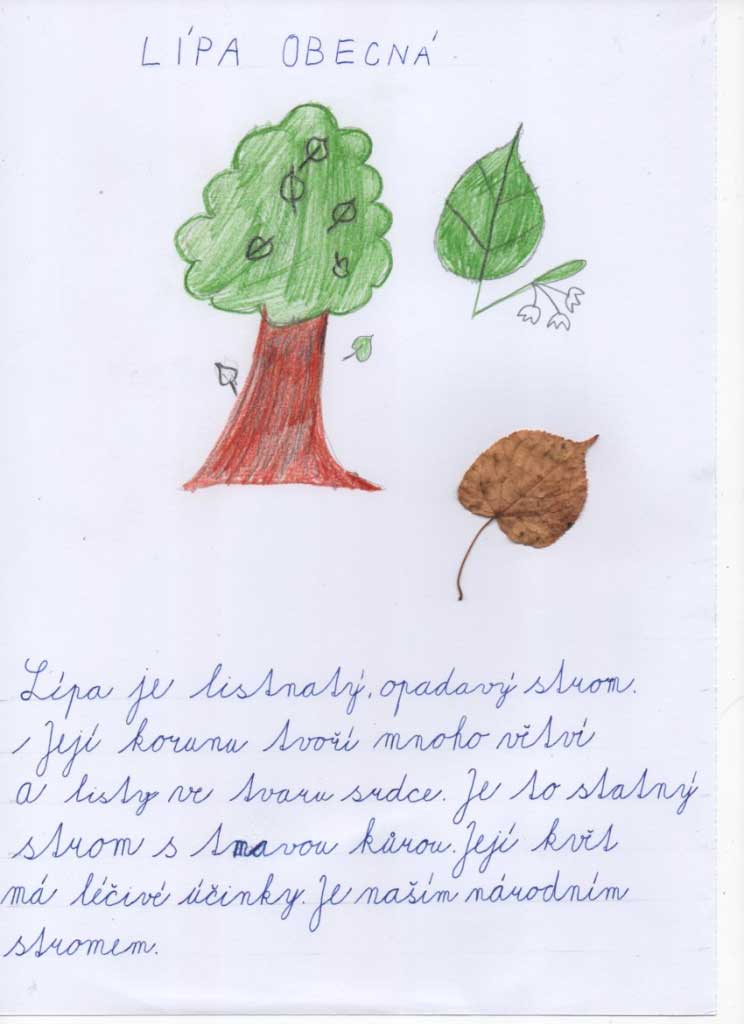 LÍPA OBECNÁ
Lípa je listnatý, opadavý strom.
Její korunu tvoří mnoho větví
a listy ve tvaru srdce. Je to statný
strom s tmavou kůrou. Její květ
má léčivé účinky. Je naším národním
stromem.